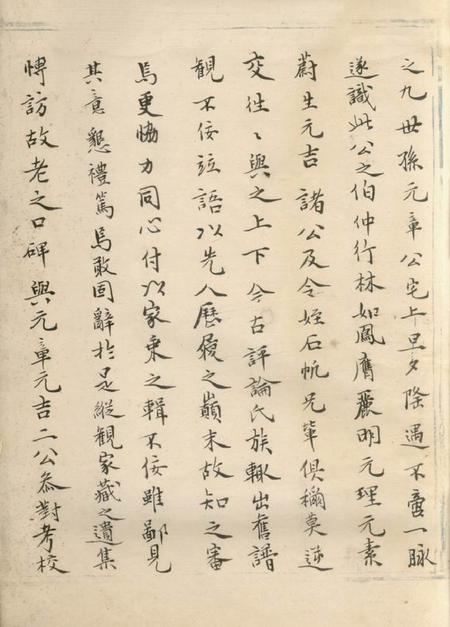 之九世孫元章公宅上早夕際遇不啻一脉
遂識此公之伯仲行林如鳳膺麗明元理元素
蔚生元吉諸公及令姪石帆兄輩俱稱莫逆
交往〻與之上下今古評論氏族輒出舊譜
観不佞竝語以先人歷履之巔末故知之審
焉更協力同心付以家乗之輯不佞雖鄙見
其意懇禮篤烏敢固辭於是縱観家藏之遺集
愽訪故老之口碑與元章元吉二公叅對考校